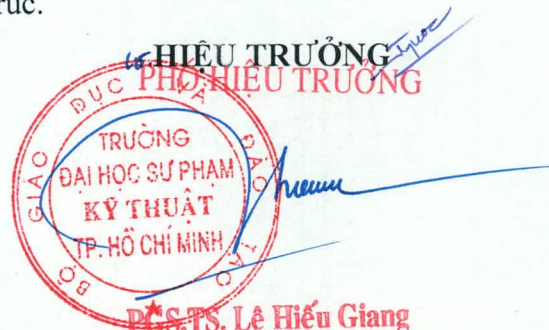 rúc.
HIỆU TRƯỞNG
PHÓ HIỆU TRƯỞNG
BỘ GIÁO DỤC VÀ ĐÀO TẠO
TRƯỜNG
ĐẠI HỌC SƯ PHẠM
KỸ THUẬT
TP. HỒ CHÍ MINH
PGS.TS. Lê Hiếu Giang